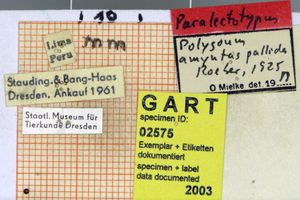 10
Lima
Peru
Stauding.& Bang-Haas
Dresden, Ankauf 1961
Staatl. Museum für
Tierkunde Dresden
Paralectotypus
Polygonus
amyntas pallida
Röber, 1925
O Mielke det. 19
GART
specimen ID:
02575
Exemplar + Etiketten
dokumentiert
specimen + label
data documented
2003